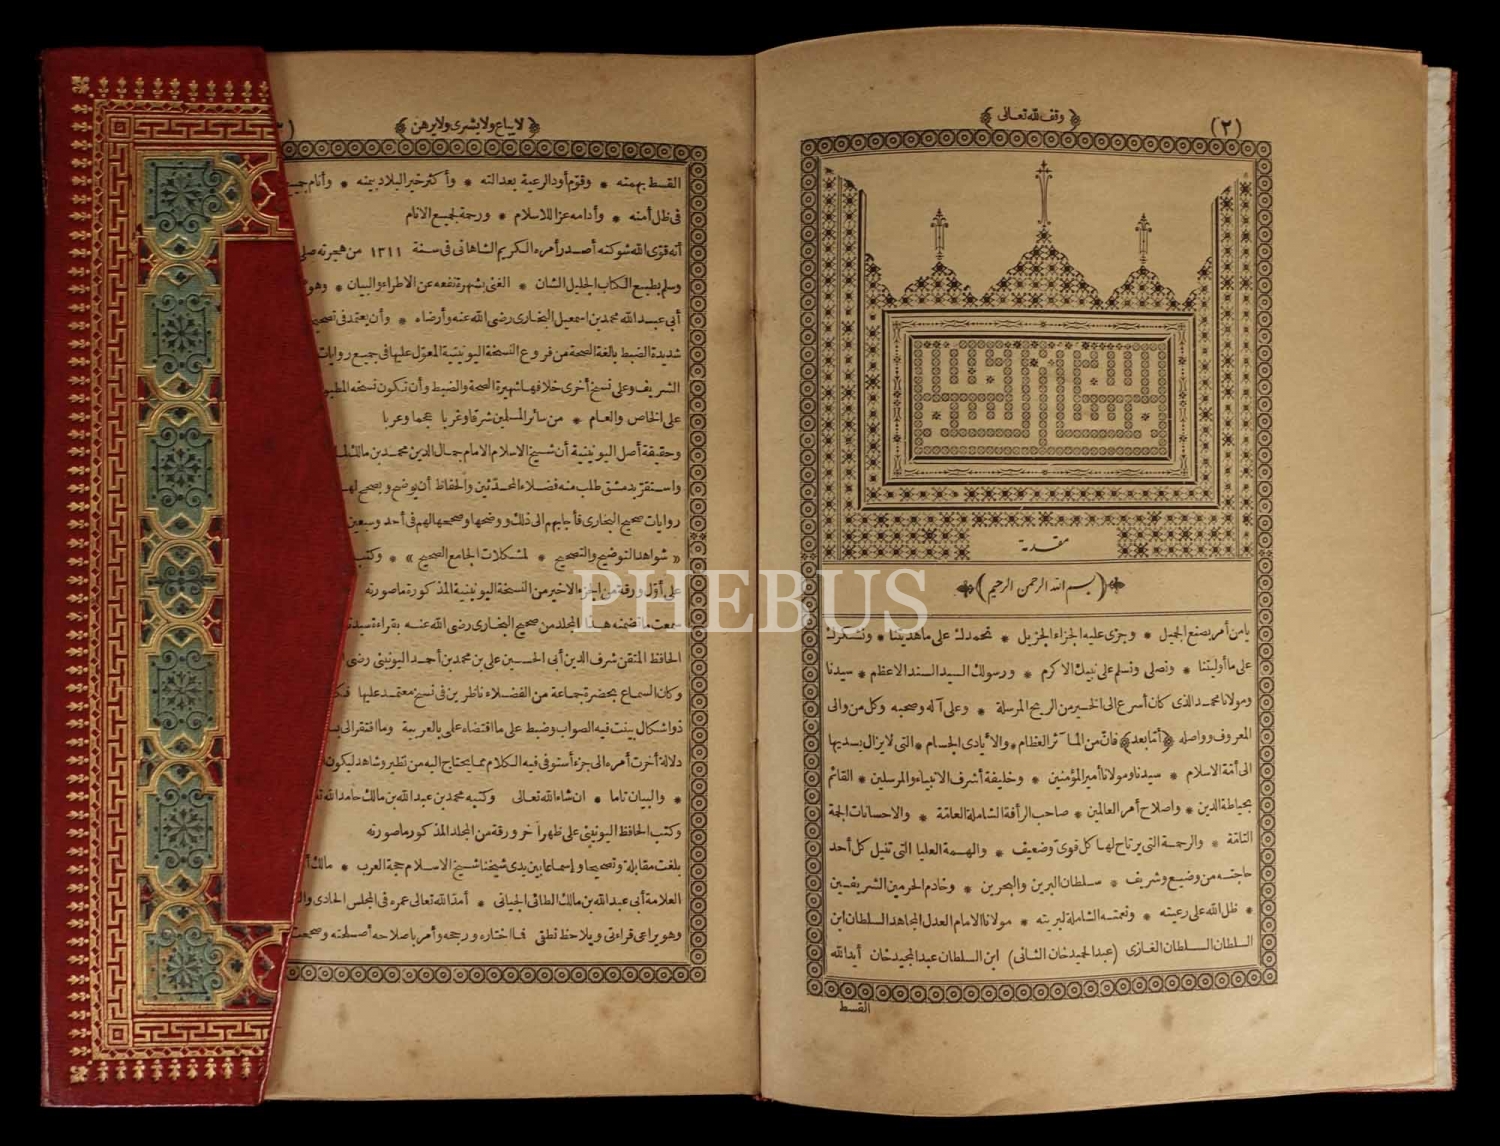 ﴿ وقف لله تعالى ﴾
(٢)
مقدمة
﴿ بسم الله الرحمن الرحيم ﴾
يا من أمر بصنع الجميل * وجزى عليه الجزاء الجزيل * نحمدك على ما هديتنا * ونشكرك
على ما أوليتنا * ونصلى ونسلم على نبيك الاكرم * ورسولك السيد السند الاعظم * سيدنا
ومولانا محمد الذى كان أسرع الى الخير من الريح المرسلة * وعلى آله وصحبه وكل من والى
المعروف وواصله ﴿أما بعد﴾ فان من المآثر العظام * والأيادى الجسام * التى لا يزال يسديها
الى أمة الاسلام * سيدنا ومولانا أمير المؤمنين * وخليفة أشرف الانبياء والمرسلين * القائم
بحياطة الدين * واصلاح أمر العالمين * صاحب الرأفة الشاملة العامة * والاحسانات الجمة
التامة * والرحمة التى يرتاح لها كل قوى وضعيف * والهمة العليا التى تنيل كل أحد
حاجته من وضيع وشريف * سلطان البرين والبحرين * وخادم الحرمين الشريفين
* ظل الله على رعيته * ونعمته الشاملة لبريته * مولانا الامام العدل المجاهد السلطان ابن
السلطان السلطان الغازى (عبد الحميد خان الثانى) ابن السلطان عبد المجيد خان أيد الله
القسط
﴿ لا يباع ولا يشرى ولا يرهن ﴾
القسط بهمته * وقوّم أود الرعية بعدالته * وأكثر خير البلاد بيمنه * وأنام
فى ظل أمنه * وأدامه عزا للاسلام * ورحمة لجميع الانام
أنه قوّى الله شوكته أصدر أمره الكريم الشاهانى فى سنة ١٣١١ من هجرته
وسلم بطبع الكتاب الجليل الشان * الغنى بشهرة نفعه عن الاطراء والبيان * وهو
أبى عبد الله محمد بن اسمعيل البخارى رضى الله عنه وأرضاه * وأن يعتمد فى
شديدة الضبط بالغة الصحة من فروع النسخة اليونينية المعوّل عليها فى جميع روايات
الشريف وعلى نسخ أخرى خلافها شهيرة الصحة والضبط وأن تكون نسخه
على الخاص والعام * من سائر المسلمين شرقا وغربا عجما وعربا
وحقيقة أصل اليونينية أن شيخ الاسلام الامام جمال الدين محمد بن مالك
واستقر بدمشق طلب منه فضلاء المحدّثين والحفاظ أن يوضح ويصحح
روايات صحيح البخارى فأجابهم الى ذلك ووضحها وصححها لهم فى أحد وسبعين
« شواهد التوضيح والتصحيح * لمشكلات الجامع الصحيح » * وكتب
على أوّل ورقة من الجزء الاخير من النسخة اليونينية المذكورة ما صورته
سمعت ما تضمنه هذا المجلد من صحيح البخارى رضى الله عنه بقراءة
الحافظ المتقن شرف الدين أبى الحسين على بن محمد بن أحمد اليونينى رضى
وكان السماع بحضرة جماعة من الفضلاء ناظرين فى نسخ معتمد عليها
ذو اشكال بينت فيه الصواب وضبط على ما اقتضاه علمى بالعربية وما افتقر الى
دلالة أخرت أمره الى جزء أستوفى فيه الكلام مما يحتاج اليه من نظير وشاهد ليكون
* والبيان تاما * ان شاء الله تعالى وكتبه محمد بن عبد الله بن مالك حامدا لله
وكتب الحافظ اليونينى على ظهر آخر ورقة من المجلد المذكور ما صورته
بلغت مقابلة وتصحيحا واسماعا بين يدى شيخنا شيخ الاسلام حجة العرب * مالك
العلامة أبى عبد الله بن مالك الطائى الجيانى * أمدّ الله تعالى عمره فى المجلس الحادى
وهو يراعى قراءتى ويلاحظ نطقى فما اختاره ورجحه وأمر باصلاحه أصلحته وصححت
PHEBUS